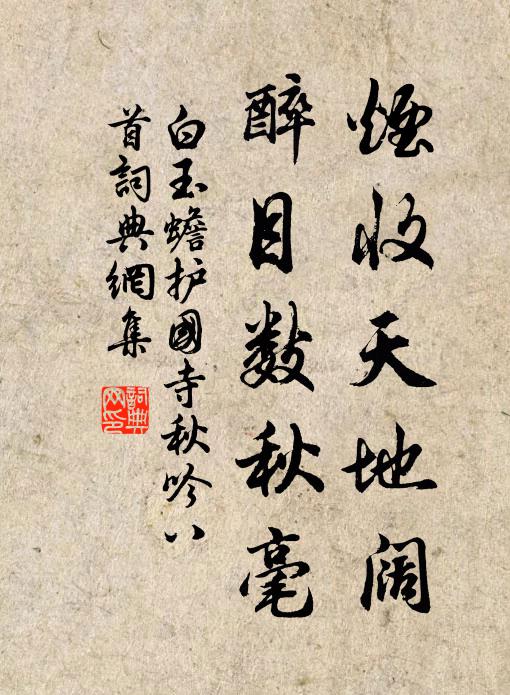 煙收天地阔
醉目数秋毫
白玉蟾护國寺秋吟八
首詞典網集
詞典
网印